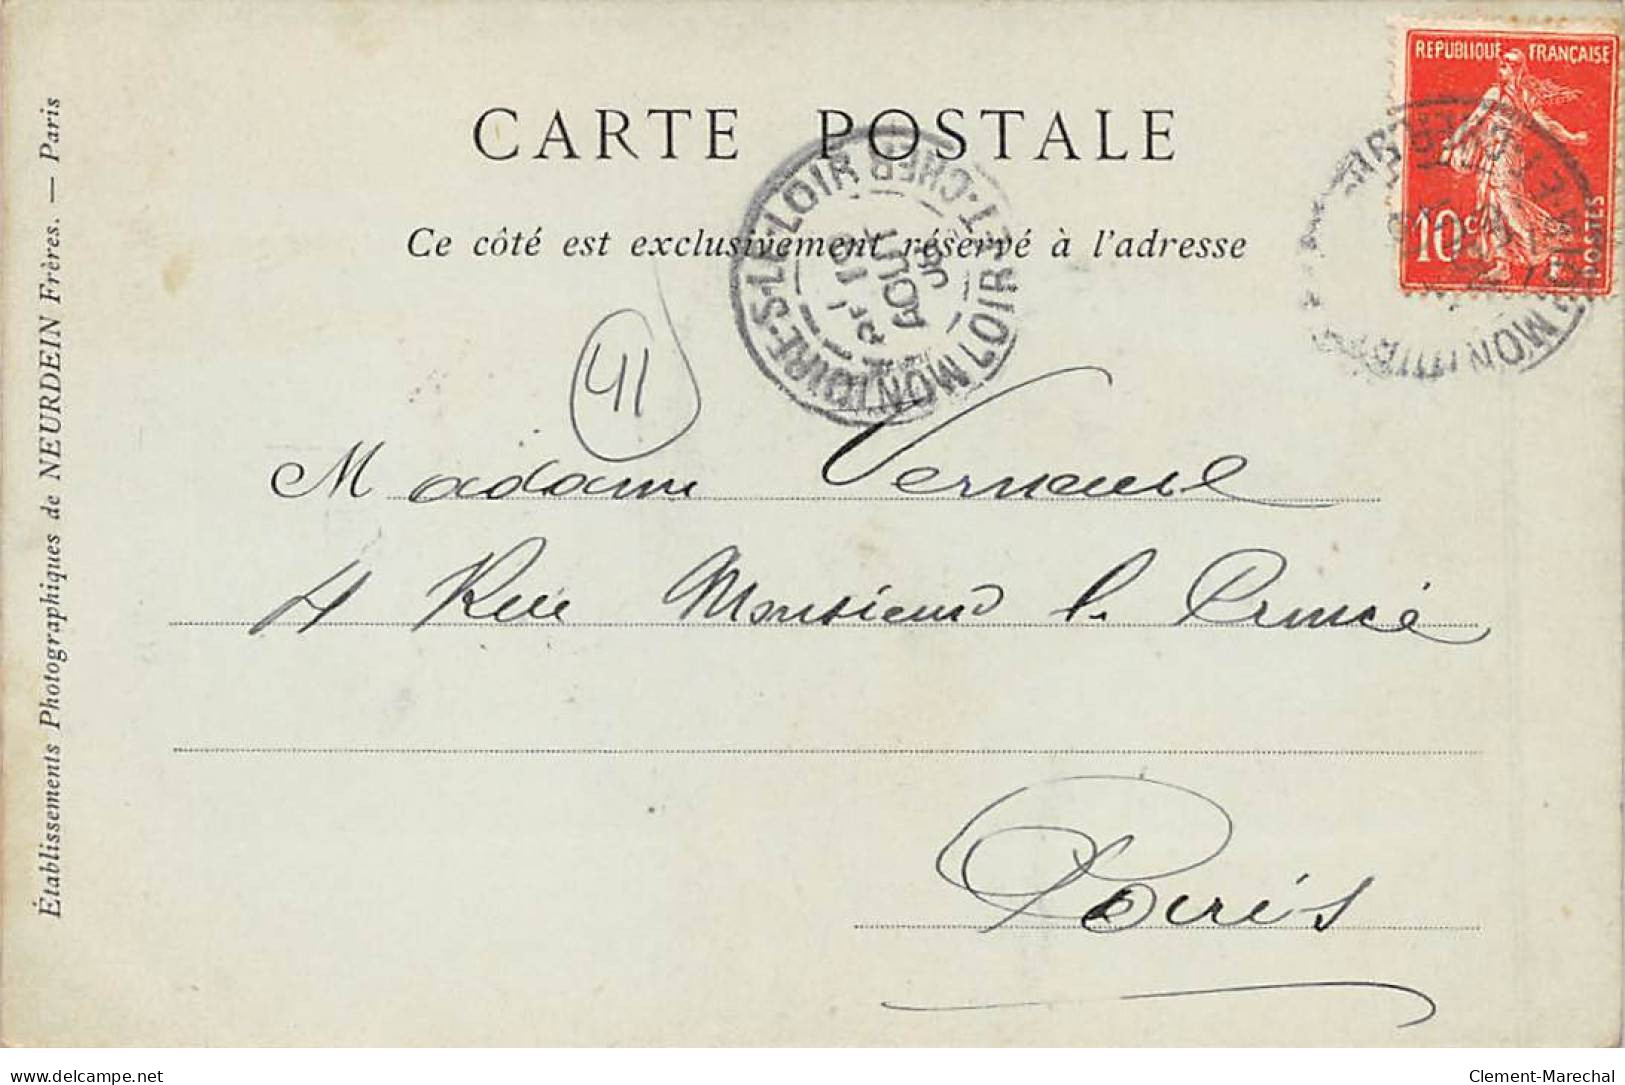 Établissements Photographiques de NEURDEIN Frères. — Paris
CARTE POSTALE
Ce côté est exclusivement réservé à l'adresse
REPUBLIQUE FRANÇAISE
10 c
POSTES
MONTOIRE-S-LE-LOIR
LOIR-ET-CHER
10
AOUT
41
Madame
4 Rue Monsieur le Prince
Paris
delcampe.net
Clement-Marechal